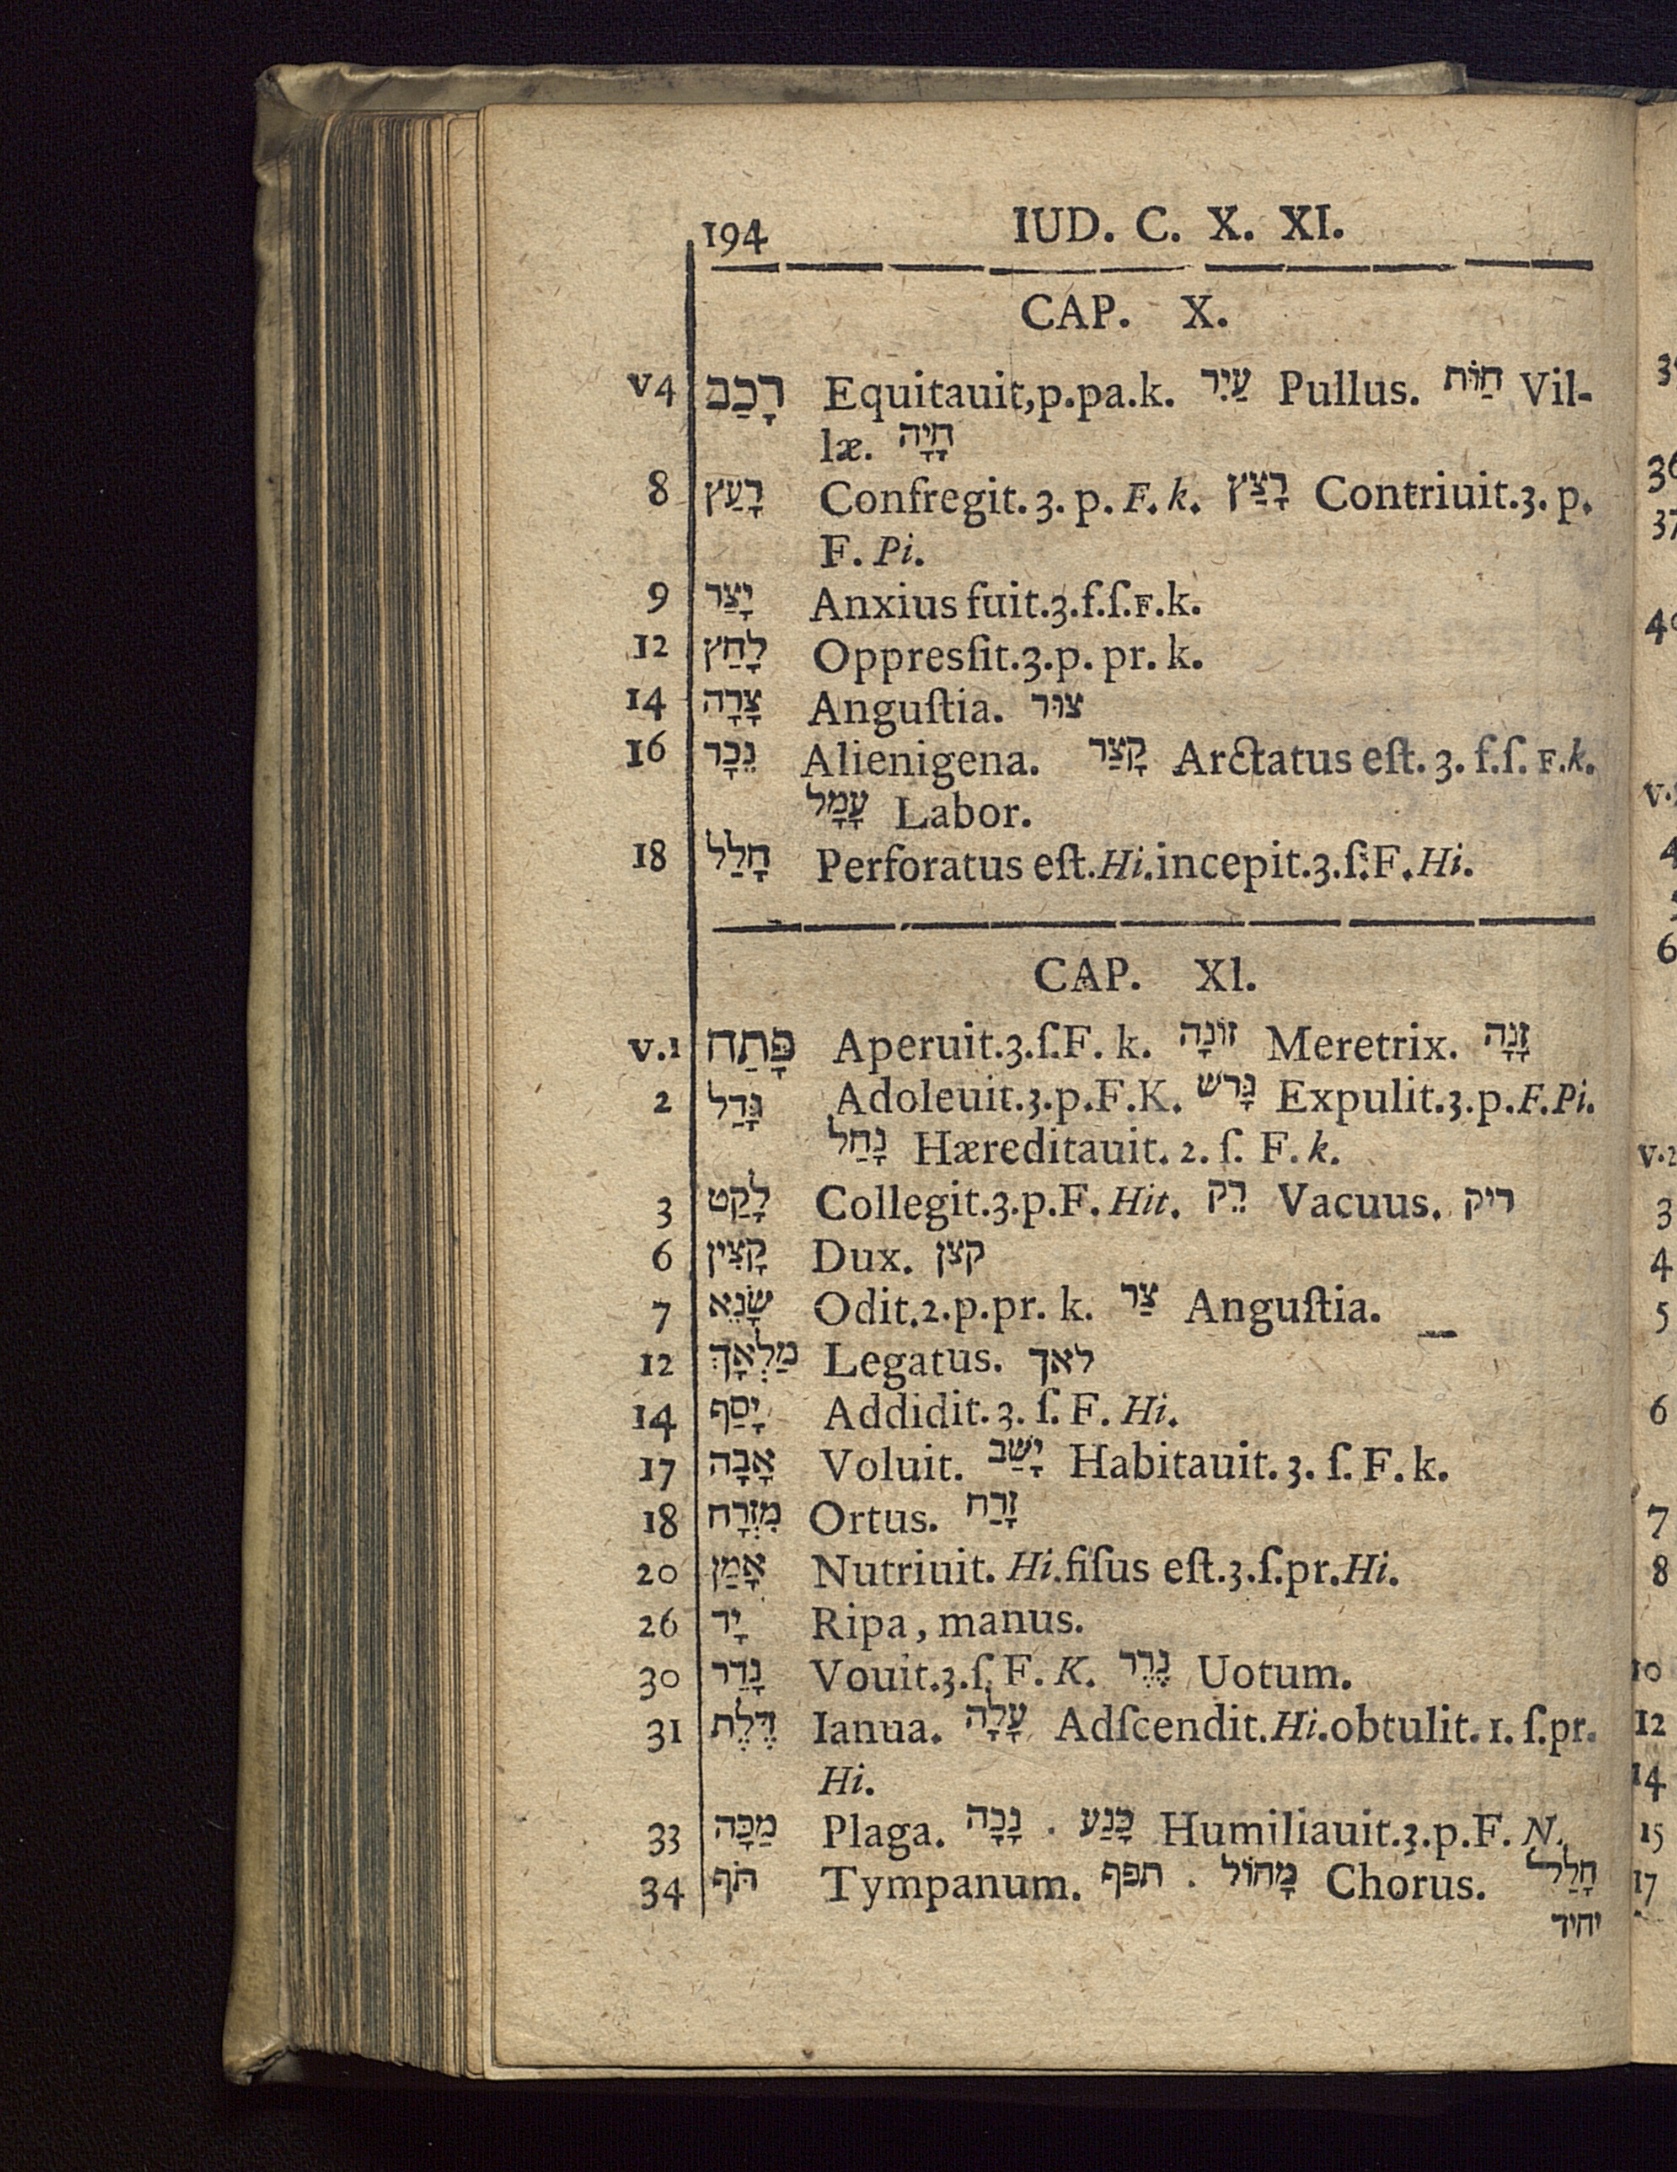 194 IUD. C. X. XI.
CAP. X.
v4 רָכַב Equitauit,p.pa.k. עַיִר Pullus. חַוֹּת Vil-
læ. חָיָה
8 רָעַץ Confregit. 3. p. F. k. רָצַץ Contriuit.3. p.
F. Pi.
9 יָצַר Anxius fuit.3.f.ſ.F.k.
12 לָחַץ Oppresſit.3.p. pr. k.
14 צָרָה Anguſtia. צוּר
16 נֵכָר Alienigena. קָצַר Arctatus eſt. 3. f.ſ. F.k.
עָמָל Labor.
18 חָלַל Perforatus eſt.Hi.incepit.3.ſ.F.Hi.
CAP. XI.
v.1 פָּתַח Aperuit.3.ſ.F. k. זוֹנָה Meretrix. זָנָה
2 גָּדַל Adoleuit.3.p.F.K. גָּרשׁ Expulit.3.p.F.Pi.
נָחַל Hæreditauit. 2. ſ. F. k.
3 לָקַט Collegit.3.p.F. Hit. רֵק Vacuus. ריק
6 קָצִין Dux. קצן
7 שָׂנֵא Odit.2.p.pr. k. צַר Anguſtia.
12 מַלְאָךְ Legatus. לאך
14 יָסַף Addidit. 3. ſ. F. Hi.
17 אָבָה Voluit. יָשַׁב Habitauit. 3. ſ. F. k.
18 מִזְרָח Ortus. זָרַח
20 אָמַן Nutriuit. Hi.fiſus eſt.3.ſ.pr.Hi.
26 יָד Ripa, manus.
30 נָדַר Vouit.3.ſ. F. K. נֶדֶר Uotum.
31 דֶּלֶת Ianua. עָלָה Adſcendit.Hi.obtulit. 1. ſ.pr.
Hi.
33 מַכָּה Plaga. נָכָה . כָּנַע Humiliauit.3.p.F. N.
34 תֹּף Tympanum. תפף . מָחוֹל Chorus. חָלַל
יחיד